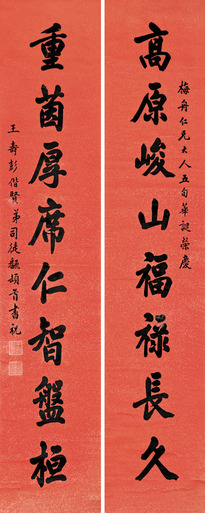 梅舟仁兄大人五旬華誕榮慶
高原峻山福祿長久
重茵厚席仁智盤桓
王壽彭偕賢弟司徒顯頓首書祝